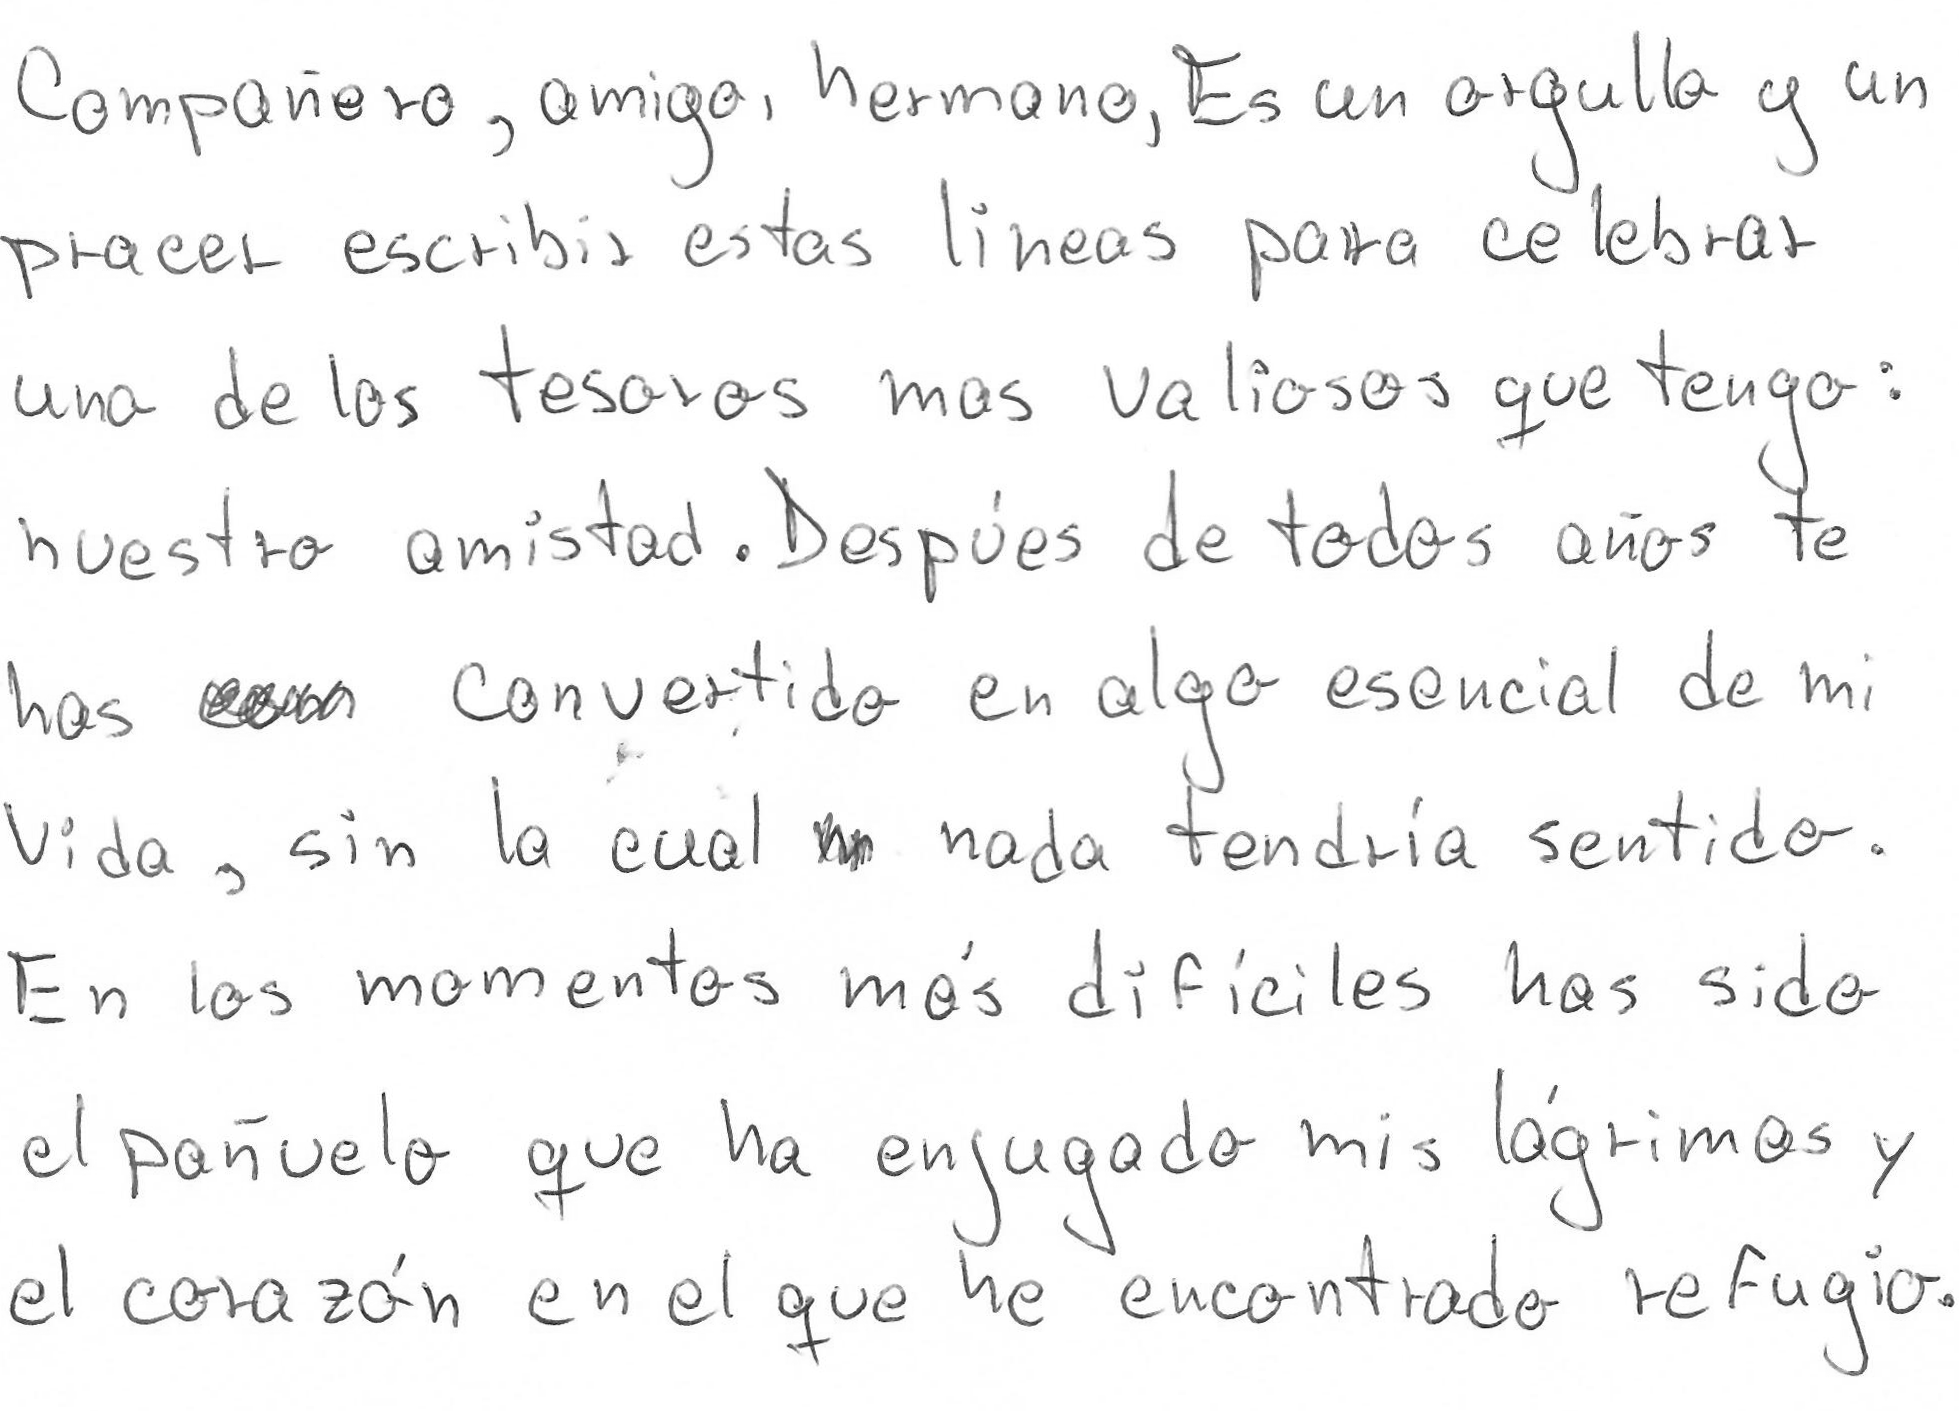 Compañero, amigo, hermano, Es un orgullo y un
pracer escribir estas lineas para celebrar
uno de los tesoros mas valiosos que tengo:
nuestro amistad. Despúes de todos años te
has convertido en algo esencial de mi
vida, sin la cual nada tendría sentido.
En los momentos más difíciles has sido
el pañuelo que ha enjugado mis lágrimas y
el corazón en el que he encontrado refugio.